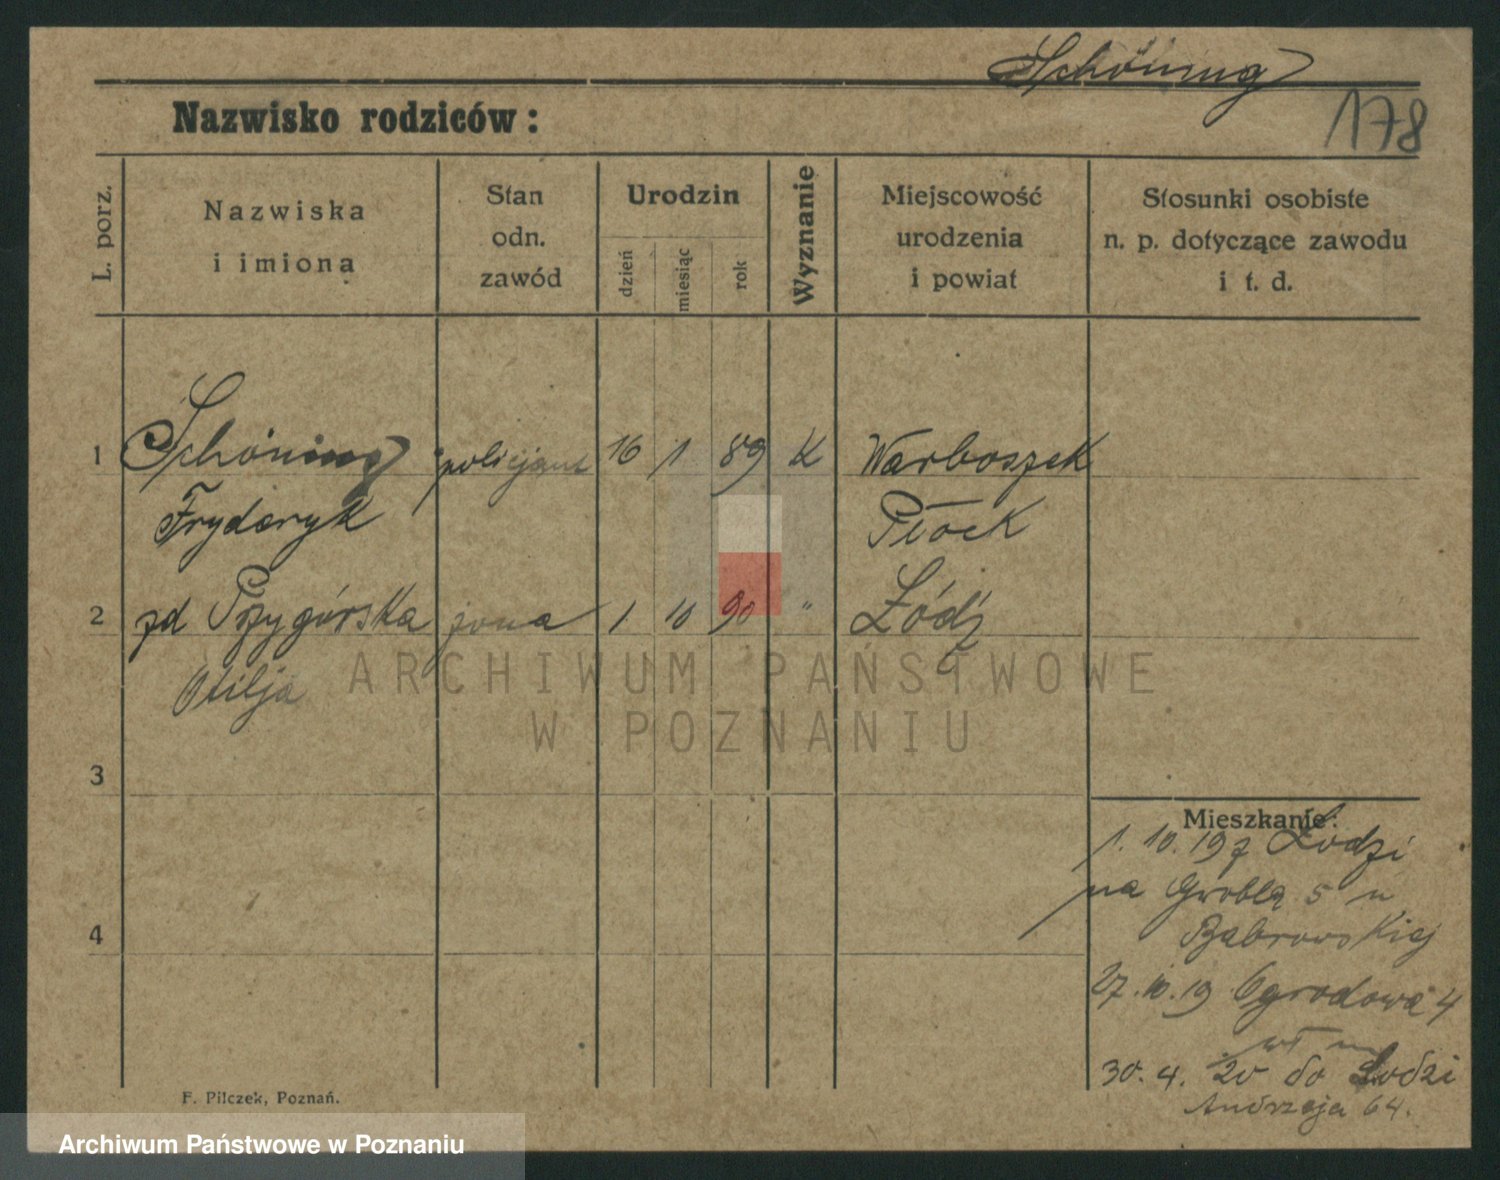 Schöning
178
Nazwisko rodziców:
L. porz.
Nazwiska
i imiona
Stan
odn.
zawód
Urodzin
dzień
miesiąc
rok
Wyznanie
Miejscowość
urodzenia
i powiat
Stosunki osobiste
n. p. dotyczące zawodu
i t. d.
1 Schöning policjant 16 1 89 K Warboszek
Fryderyk Płock
2 zd Przygórska żona 1 10 90 " Łódź
Otilja
3
4
Mieszkanie:
1. 10. 19 z Łodzi
na Groblą 5 u
Bąbrowskiej
27. 10. 19 Ogrodowa 4
wł m
30. 4. 20 do Łodzi
Andrzeja 64.
F. Pilczek, Poznań.
ARCHIWUM PAŃSTWOWE
W POZNANIU
Archiwum Państwowe w Poznaniu